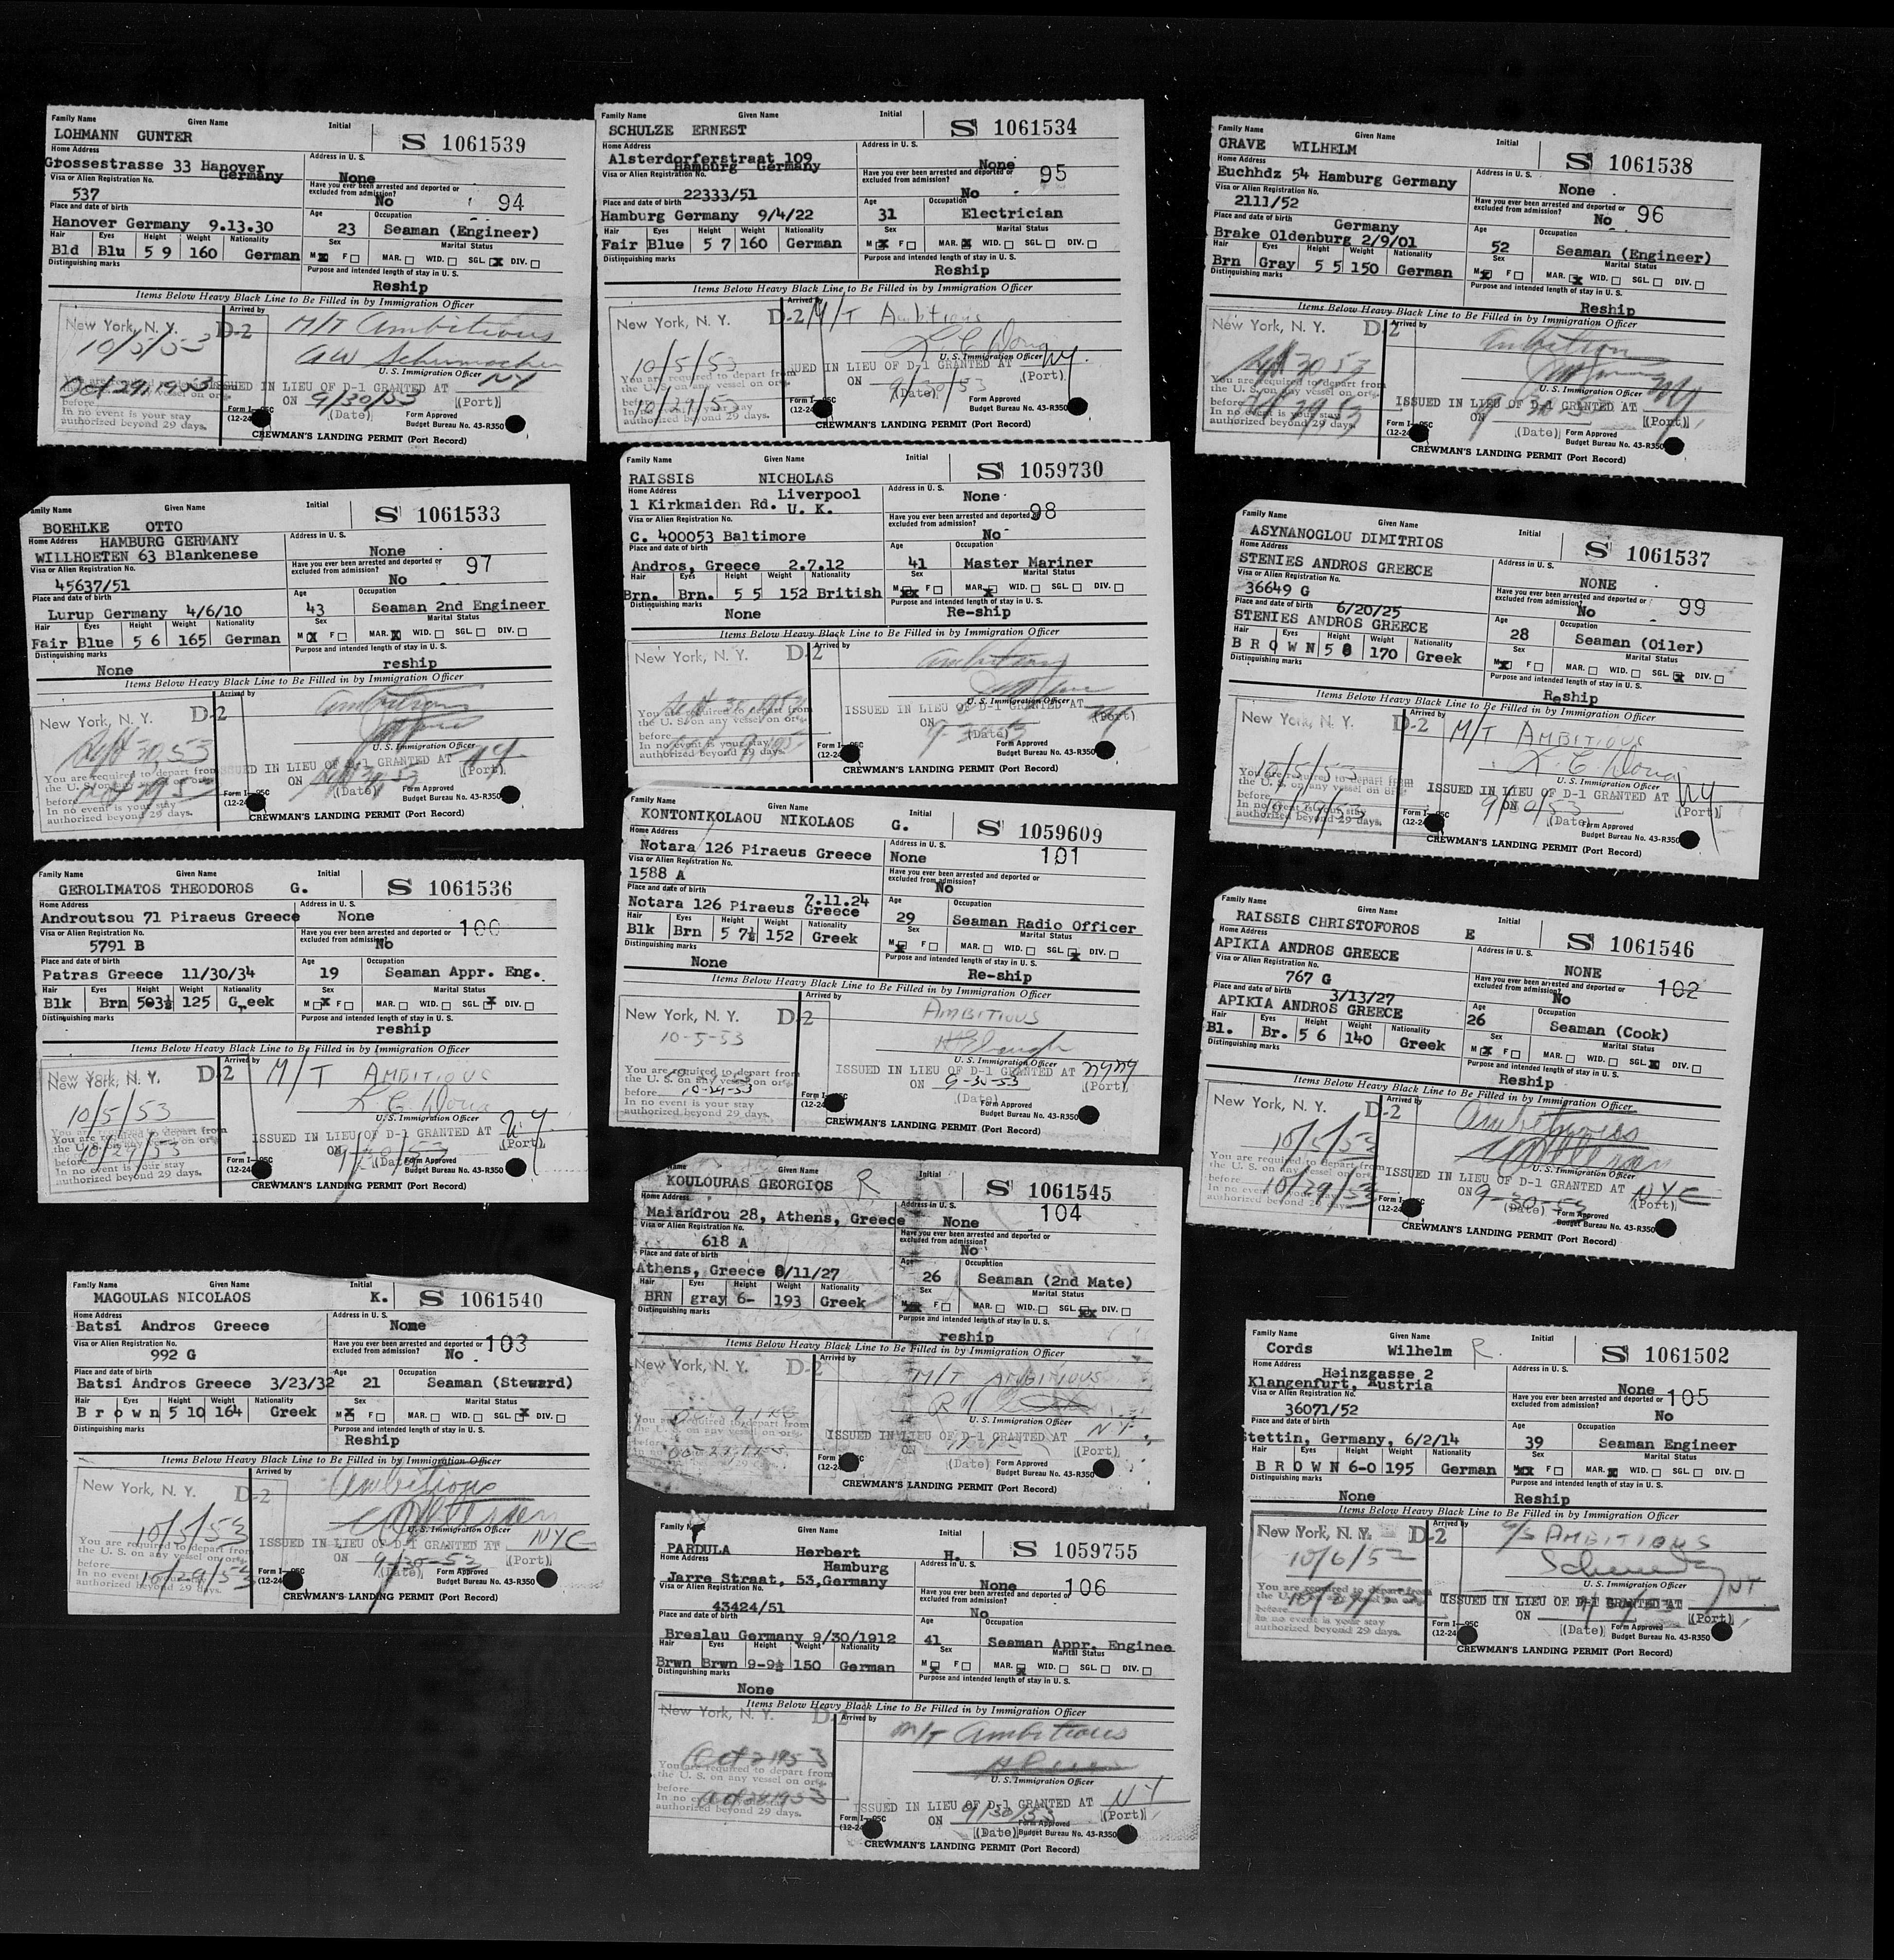 Family Name Given Name Initial
LOHMANN GUNTER S 1061539
Home Address Address in U. S.
Grossestrasse 33 Hanover Germany None
Visa or Alien Registration No. Have you ever been arrested and deported or excluded from admission?
537 No 94
Place and date of birth Age Occupation
Hanover Germany 9.13.30 23 Seaman (Engineer)
Hair Eyes Height Weight Nationality Sex Marital Status
Bld Blu 5 9 160 German M☒ F☐ MAR.☐ WID.☐ SGL.☒ DIV.☐
Distinguishing marks Purpose and intended length of stay in U. S.
Reship
Items Below Heavy Black Line to Be Filled in by Immigration Officer
New York, N. Y. D-2 Arrived by M/T Ambitious
10/5/53
U. S. Immigration Officer
You are required to depart from the U. S. on any vessel on or before Oct 29, 1953
ISSUED IN LIEU OF D-1 GRANTED AT NY (Port)
ON 9/30/53 (Date)
In no event is your stay authorized beyond 29 days.
Form I-95C (12-24 Form Approved Budget Bureau No. 43-R350
CREWMAN'S LANDING PERMIT (Port Record)
Family Name Given Name Initial
SCHULZE ERNEST S 1061534
Home Address Address in U. S.
Alsterdorferstraat 109 Hamburg Germany None
Visa or Alien Registration No. Have you ever been arrested and deported or excluded from admission?
22333/51 No 95
Place and date of birth Age Occupation
Hamburg Germany 9/4/22 31 Electrician
Hair Eyes Height Weight Nationality Sex Marital Status
Fair Blue 5 7 160 German M☒ F☐ MAR.☒ WID.☐ SGL.☐ DIV.☐
Distinguishing marks Purpose and intended length of stay in U. S.
Reship
Items Below Heavy Black Line to Be Filled in by Immigration Officer
New York, N. Y. D-2 Arrived by M/T Ambitious
10/5/53
U. S. Immigration Officer
You are required to depart from the U. S. on any vessel on or before 10/29/53
ISSUED IN LIEU OF D-1 GRANTED AT NY. (Port)
ON 9/30/53 (Date)
In no event is your stay authorized beyond 29 days.
Form I-95C (12-24 Form Approved Budget Bureau No. 43-R350
CREWMAN'S LANDING PERMIT (Port Record)
Family Name Given Name Initial
GRAVE WILHELM S 1061538
Home Address Address in U. S.
Euchhdz 54 Hamburg Germany None
Visa or Alien Registration No. Have you ever been arrested and deported or excluded from admission?
2111/52 No 96
Place and date of birth Age Occupation
Germany
Brake Oldenburg 2/9/01 52 Seaman (Engineer)
Hair Eyes Height Weight Nationality Sex Marital Status
Brn Gray 5 5 150 German M☒ F☐ MAR.☒ WID.☐ SGL.☐ DIV.☐
Distinguishing marks Purpose and intended length of stay in U. S.
Reship
Items Below Heavy Black Line to Be Filled in by Immigration Officer
D-2 Arrived by
New York, N. Y.
Sept 30 53
U. S. Immigration Officer
You are required to depart from the U. S. on any vessel on or before
ISSUED IN LIEU OF D-1 GRANTED AT NY (Port)
ON (Date)
In no event is your stay authorized beyond 29 days.
Form I-95C (12-24 Form Approved Budget Bureau No. 43-R350
CREWMAN'S LANDING PERMIT (Port Record)
Family Name Given Name Initial
BOEHLKE OTTO S 1061533
Home Address HAMBURG GERMANY Address in U. S.
WILLHOETEN 63 Blankenese None
Visa or Alien Registration No. Have you ever been arrested and deported or excluded from admission?
45637/51 No 97
Place and date of birth Age Occupation
Lurup Germany 4/6/10 43 Seaman 2nd Engineer
Hair Eyes Height Weight Nationality Sex Marital Status
Fair Blue 5 6 165 German M☒ F☐ MAR.☒ WID.☐ SGL.☐ DIV.☐
Distinguishing marks Purpose and intended length of stay in U. S.
None reship
Items Below Heavy Black Line to Be Filled in by Immigration Officer
New York, N. Y. D-2 Arrived by
Sept 30, 53
U. S. Immigration Officer
You are required to depart from the U. S. on any vessel on or before
ISSUED IN LIEU OF D-1 GRANTED AT NY (Port)
ON (Date)
In no event is your stay authorized beyond 29 days.
Form I-95C (12-24 Form Approved Budget Bureau No. 43-R350
CREWMAN'S LANDING PERMIT (Port Record)
Family Name Given Name Initial
RAISSIS NICHOLAS S 1059730
Home Address Address in U. S.
1 Kirkmaiden Rd. Liverpool U. K. None
Visa or Alien Registration No. Have you ever been arrested and deported or excluded from admission?
C. 400053 Baltimore No 98
Place and date of birth Age Occupation
Andros, Greece 2.7.12 41 Master Mariner
Hair Eyes Height Weight Nationality Sex Marital Status
Brn. Brn. 5 5 152 British M☒ F☐ MAR.☒ WID.☐ SGL.☐ DIV.☐
Distinguishing marks Purpose and intended length of stay in U. S.
None Re-ship
Items Below Heavy Black Line to Be Filled in by Immigration Officer
New York, N. Y. D-2 Arrived by
U. S. Immigration Officer
You are required to depart from the U. S. on any vessel on or before
ISSUED IN LIEU OF D-1 GRANTED AT (Port)
ON (Date)
In no event is your stay authorized beyond 29 days.
Form I-95C (12-24 Form Approved Budget Bureau No. 43-R350
CREWMAN'S LANDING PERMIT (Port Record)
Family Name Given Name Initial
ASYNANOGLOU DIMITRIOS S 1061537
Home Address Address in U. S.
STENIES ANDROS GREECE NONE
Visa or Alien Registration No. Have you ever been arrested and deported or excluded from admission?
36649 G No 99
Place and date of birth 6/20/25 Age Occupation
STENIES ANDROS GREECE 28 Seaman (Oiler)
Hair Eyes Height Weight Nationality Sex Marital Status
B R O W N 5 8 170 Greek M☒ F☐ MAR.☐ WID.☐ SGL.☒ DIV.☐
Distinguishing marks Purpose and intended length of stay in U. S.
Reship
Items Below Heavy Black Line to Be Filled in by Immigration Officer
New York, N. Y. D-2 Arrived by M/T AMBITIOUS
10/5/53
U. S. Immigration Officer
You are required to depart from the U. S. on any vessel on or before 10/29/53
ISSUED IN LIEU OF D-1 GRANTED AT NY (Port)
ON 9/30/53 (Date)
In no event is your stay authorized beyond 29 days.
Form I-95C (12-24 Form Approved Budget Bureau No. 43-R350
CREWMAN'S LANDING PERMIT (Port Record)
Family Name Given Name Initial
GEROLIMATOS THEODOROS G. S 1061536
Home Address Address in U. S.
Androutsou 71 Piraeus Greece None
Visa or Alien Registration No. Have you ever been arrested and deported or excluded from admission?
5791 B No 100
Place and date of birth Age Occupation
Patras Greece 11/30/34 19 Seaman Appr. Eng.
Hair Eyes Height Weight Nationality Sex Marital Status
Blk Brn 503½ 125 Greek M☒ F☐ MAR.☐ WID.☐ SGL.☒ DIV.☐
Distinguishing marks Purpose and intended length of stay in U. S.
reship
Items Below Heavy Black Line to Be Filled in by Immigration Officer
New York, N. Y. D-2 Arrived by M/T AMBITIOUS
10/5/53
U. S. Immigration Officer
You are required to depart from the U. S. on any vessel on or before 10/29/53
ISSUED IN LIEU OF D-1 GRANTED AT N.Y. (Port)
ON 9/30/53 (Date)
In no event is your stay authorized beyond 29 days.
Form I-95C (12-24 Form Approved Budget Bureau No. 43-R350
CREWMAN'S LANDING PERMIT (Port Record)
Family Name Given Name Initial
KONTONIKOLAOU NIKOLAOS G. S 1059609
Home Address Address in U. S.
Notara 126 Piraeus Greece None 101
Visa or Alien Registration No. Have you ever been arrested and deported or excluded from admission?
1588 A No
Place and date of birth 7.11.24 Age Occupation
Notara 126 Piraeus Greece 29 Seaman Radio Officer
Hair Eyes Height Weight Nationality Sex Marital Status
Blk Brn 5 7½ 152 Greek M☒ F☐ MAR.☐ WID.☐ SGL.☒ DIV.☐
Distinguishing marks Purpose and intended length of stay in U. S.
None Re-ship
Items Below Heavy Black Line to Be Filled in by Immigration Officer
New York, N. Y. D-2 Arrived by AMBITIOUS
10-5-53
U. S. Immigration Officer
You are required to depart from the U. S. on any vessel on or before 10-29-53
ISSUED IN LIEU OF D-1 GRANTED AT NYNY (Port)
ON 9-30-53 (Date)
In no event is your stay authorized beyond 29 days.
Form I-95C (12-24 Form Approved Budget Bureau No. 43-R350
CREWMAN'S LANDING PERMIT (Port Record)
Family Name Given Name Initial
RAISSIS CHRISTOFOROS E S 1061546
Home Address Address in U. S.
APIKIA ANDROS GREECE NONE
Visa or Alien Registration No. Have you ever been arrested and deported or excluded from admission?
767 G No 102
Place and date of birth 3/13/27 Age Occupation
APIKIA ANDROS GREECE 26 Seaman (Cook)
Hair Eyes Height Weight Nationality Sex Marital Status
Bl. Br. 5 6 140 Greek M☒ F☐ MAR.☐ WID.☐ SGL.☒ DIV.☐
Distinguishing marks Purpose and intended length of stay in U. S.
Reship
Items Below Heavy Black Line to Be Filled in by Immigration Officer
New York, N. Y. D-2 Arrived by Ambitious
10/5/53
U. S. Immigration Officer
You are required to depart from the U. S. on any vessel on or before 10/29/53
ISSUED IN LIEU OF D-1 GRANTED AT NYC (Port)
ON 9-30-53 (Date)
In no event is your stay authorized beyond 29 days.
Form I-95C (12-24 Form Approved Budget Bureau No. 43-R350
CREWMAN'S LANDING PERMIT (Port Record)
Family Name Given Name Initial
MAGOULAS NICOLAOS K. S 1061540
Home Address Address in U. S.
Batsi Andros Greece None
Visa or Alien Registration No. Have you ever been arrested and deported or excluded from admission?
992 G No 103
Place and date of birth Age Occupation
Batsi Andros Greece 3/23/32 21 Seaman (Steward)
Hair Eyes Height Weight Nationality Sex Marital Status
B r o w n 5 10 164 Greek M☒ F☐ MAR.☐ WID.☐ SGL.☒ DIV.☐
Distinguishing marks Purpose and intended length of stay in U. S.
Reship
Items Below Heavy Black Line to Be Filled in by Immigration Officer
New York, N. Y. D-2 Arrived by Ambitious
10/5/53
U. S. Immigration Officer
You are required to depart from the U. S. on any vessel on or before 10/29/53
ISSUED IN LIEU OF D-1 GRANTED AT NYC (Port)
ON 9/30-53 (Date)
In no event is your stay authorized beyond 29 days.
Form I-95C (12-24 Form Approved Budget Bureau No. 43-R350
CREWMAN'S LANDING PERMIT (Port Record)
Name Given Name Initial
KOULOURAS GEORGIOS R S 1061545
Home Address Address in U. S.
Maiandrou 28, Athens, Greece None 104
Visa or Alien Registration No. Have you ever been arrested and deported or excluded from admission?
618 A No
Place and date of birth Age Occupation
Athens, Greece 8/11/27 26 Seaman (2nd Mate)
Hair Eyes Height Weight Nationality Sex Marital Status
BRN gray 6- 193 Greek M☒ F☐ MAR.☐ WID.☐ SGL.☒ DIV.☐
Distinguishing marks Purpose and intended length of stay in U. S.
reship
Items Below Heavy Black Line to Be Filled in by Immigration Officer
New York, N. Y. D-2 Arrived by M/T AMBITIOUS
U. S. Immigration Officer
You are required to depart from the U. S. on any vessel on or before
ISSUED IN LIEU OF D-1 GRANTED AT N.Y. (Port)
ON (Date)
In no event is your stay authorized beyond 29 days.
Form I-95C (12-24 Form Approved Budget Bureau No. 43-R350
CREWMAN'S LANDING PERMIT (Port Record)
Family Name Given Name Initial
Cords Wilhelm R. S 1061502
Home Address Address in U. S.
Heinzgasse 2
Klangenfurt, Austria None
Visa or Alien Registration No. Have you ever been arrested and deported or excluded from admission?
36071/52 No 105
Place and date of birth Age Occupation
Stettin, Germany, 6/2/14 39 Seaman Engineer
Hair Eyes Height Weight Nationality Sex Marital Status
B R O W N 6-0 195 German M☒ F☐ MAR.☒ WID.☐ SGL.☐ DIV.☐
Distinguishing marks Purpose and intended length of stay in U. S.
None Reship
Items Below Heavy Black Line to Be Filled in by Immigration Officer
New York, N. Y. D-2 Arrived by AMBITIOUS
10/6/53
U. S. Immigration Officer
You are required to depart from the U. S. on any vessel on or before
ISSUED IN LIEU OF D-1 GRANTED AT NY (Port)
ON (Date)
In no event is your stay authorized beyond 29 days.
Form I-95C (12-24 Form Approved Budget Bureau No. 43-R350
CREWMAN'S LANDING PERMIT (Port Record)
Family Name Given Name Initial
PARDULA Herbert H. S 1059755
Home Address Address in U. S.
Hamburg
Jarre Straat, 53, Germany None
Visa or Alien Registration No. Have you ever been arrested and deported or excluded from admission?
43424/51 No 106
Place and date of birth Age Occupation
Breslau Germany 9/30/1912 41 Seaman Appr. Enginee
Hair Eyes Height Weight Nationality Sex Marital Status
Brwn Brwn 9-9½ 150 German M☒ F☐ MAR.☒ WID.☐ SGL.☐ DIV.☐
Distinguishing marks Purpose and intended length of stay in U. S.
None
Items Below Heavy Black Line to Be Filled in by Immigration Officer
New York, N. Y. D-2 Arrived by M/T Ambitious
Oct 2 1953
U. S. Immigration Officer
You are required to depart from the U. S. on any vessel on or before
ISSUED IN LIEU OF D-1 GRANTED AT NY (Port)
ON 9/30/53 (Date)
In no event is your stay authorized beyond 29 days.
Form I-95C (12-24 Form Approved Budget Bureau No. 43-R350
CREWMAN'S LANDING PERMIT (Port Record)